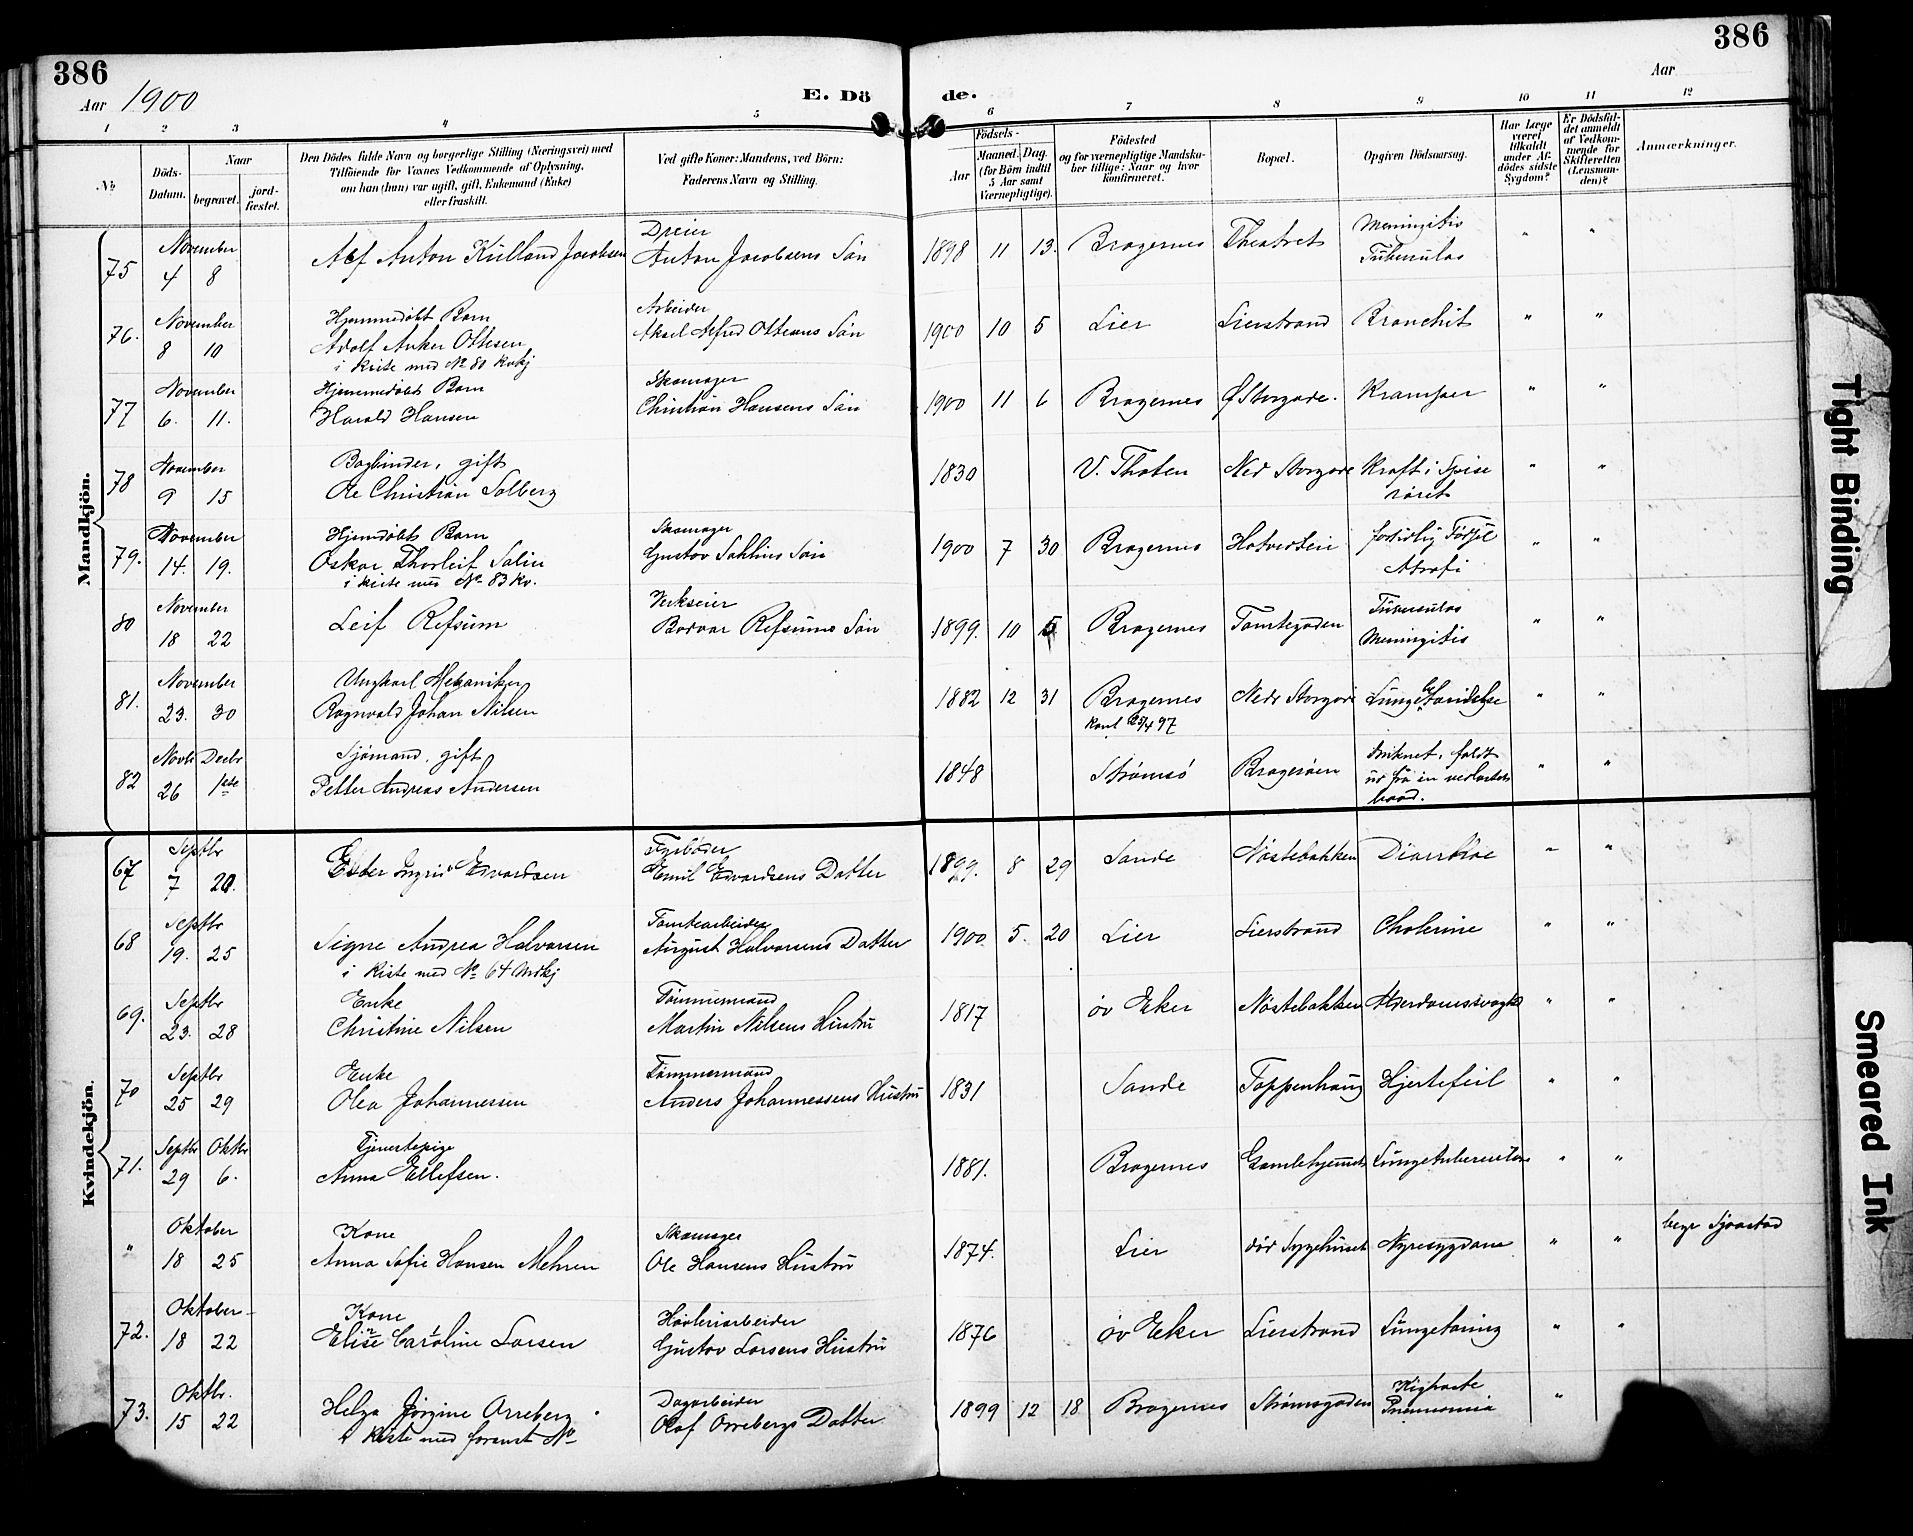 386
386
Aar 1900
E. Dö de.
Aar
1 2 3 4 5 6 7 8 9 10 11 12
No
Döds-Datum.
Naar
begravet.
jord-fæstet.
Den Dödes fulde Navn og borgerlige Stilling (Næringsvei) med
Tilföiende for Voxnes Vedkommende af Oplysning,
om han (hun) var ugift, gift, Enkemand (Enke)
eller fraskilt.
Ved gifte Koner: Mandens, ved Börn:
Faderens Navn og Stilling.
Födsels-
Aar
Maaned. Dag.
(for Börn indtil
5 Aar samt
Værnepligtige).
Födested
og for værnepligtige Mandska-
ber tillige: Naar og hvor
konfirmeret.
Bopæl.
Opgiven Dödsaarsag.
Har Læge
været
tilkaldt
under Af-
dödes sidste
Sygdom?
Er Dödsfal-
det anmeldt
af Vedkom-
mende for
Skifteretten
(Lensman-
den)?
Anmærkninger.
Mandkjön.
75 November 4 8 Alf Anton Kulland Jacobsen Dreier Anton Jacobsens Søn 1898 11 13. Bragernes Theatret Meningitis Tuberculos " "
76. November 8 10 Hjemmedøbt Barn Adolf Anker Ottesen i Kiste med No 80 Kvkj Arbeider Aksel Alfred Ottesens Søn 1900 10 5 Lier Lierstrand Bronchit " "
77 November 6. 11. Hjemmedøbt Barn Harald Hansen Skomager Christian Hansens Søn 1900 11 6 Bragernes Ø Storgade. Kramper " "
78 November 9 15 Bogbinder, gift Ole Christian Solberg 1830 V. Thoten Ned Storgade Kræft i Spise røret " "
79. November 14. 19. Hjemdøbt Barn Oskar Thorleif Salin i Kiste med No 83 Kv. Skomager Gustav Sahlins Søn 1900 7 30 Bragernes Hotvedtvei fortidlig Fødsel Atrofi " "
80 November 18 22 Leif Refsum Verkseier Bodvar Refsums Søn 1899. 10 5 Bragernes Tomtegaden Tuberculos Meningitis " "
81. November 23. 30 Ungkarl Mekaniker Ragnvald Johan Nilsen 1882 12 31 Bragernes Konf 25/4 97 Nedr Storgade Lungebetændelse " "
82 Novbr Decbr 26 1ste Sjömand, gift Petter Andreas Andersen 1848 Strømsø Bragerøen druknet, faldt ud fra en baad. " "
Kvindekjön.
67 Septbr 7 20. Ester Ingrid Edvardsen Fyrbøder Emil Edvardsens Datter 1899. 8 29 Sande Nøstebakken Diarrhoe " "
68 Septbr 19. 25 Signe Andrea Halvorsen i Kiste med No 64 Mdkj Tomtearbeider August Halvorsens Datter 1900 5. 20 Lier Lierstrand Cholerine " "
69. Septbr 23. 28 Enke Christine Nilsen Tømmermand Martin Nilsens Hustru 1817 øv Eker Nøstebakken Alderdomssvaghd " "
70 Septbr 25 29 Enke Olea Johannessen Tømmermand Anders Johannessens Hustru 1831 Sande Toppenhaug Hjertefeil " "
71. Septbr Oktbr 29 6. Tjenestepige Anna Ellefsen. 1881. Bragernes Gamlehjemmet Lungetuberculos " "
" Oktober 18 25 Kone Anna Sofie Hansen Mehren Skomager Ole Hansens Hustru 1874. Lier død Sygehuset Nyresygdom " " begr Sjaastad
72. Oktober 18 22 Kone Elise Caroline Larsen Høvleriarbeider Gustav Larsens Hustru 1876 øv Eker Lierstrand Lungetæring " "
73. Oktbr. 15 22 Helga Jørgine Orreberg i Kiste med foranst No Dagarbeider Olaf Orrebergs Datter 1899 12 18 Bragernes Strømsgaden Kighoste Pneumonia "
Tight Binding
Smeared Ink